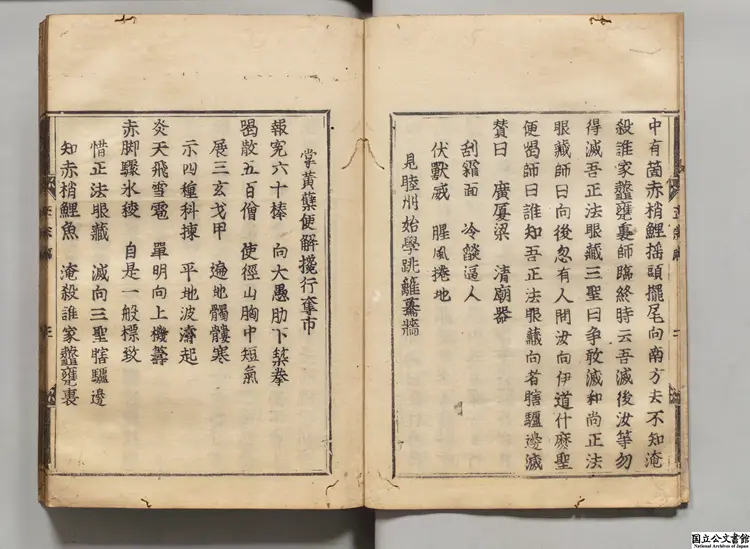 中有箇赤梢鯉搖頭擺尾向南方去不知淹
殺誰家虀甕裏師臨終時云吾滅後汝等勿
得滅吾正法眼藏三聖曰争敢滅和尚正法
眼藏師曰向後忽有人問汝向伊道什麽聖
便喝師曰誰知吾正法眼藏向者瞎驢邊滅
賛曰 廣厦梁 清廟器
刮霜面 冷燄逼人
伏獸威 腥風捲地
見睦州始學跳籬驀牆
掌黃蘗便解攙行奪市
報寃六十棒 向大愚肋下築拳
喝散五百僧 使徑山胸中短氣
展三玄戈甲 遍地髑髏寒
示四種科揀 平地波濤起
炎天飛雪雹 單明向上機籌
赤脚騾氷稜 自是一般標致
惜正法眼藏 滅向三聖瞎驢邊
知赤梢鯉魚 淹殺誰家虀甕裏
国立公文書館
National Archives of Japan